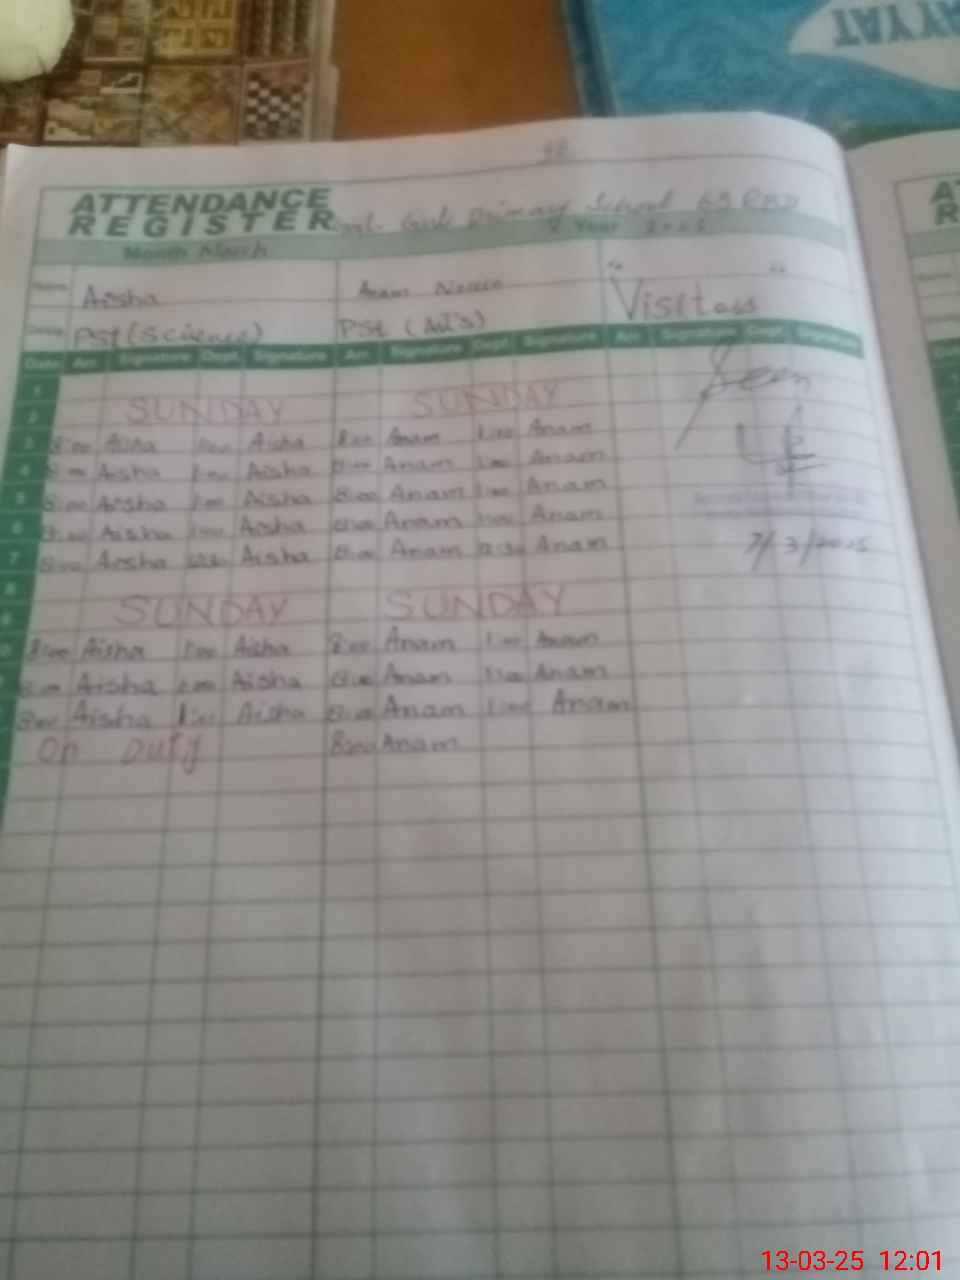 TAYYAY
ATTENDANCE
REGISTER Govt. Girls Primary School
Month March Year 2025
Name Aisha Anam Visitors
PST (Science) PST (Art's)
Date Arr. Signature Dept. Signature Arr. Signature Dept. Signature Arr. Signature Dept. Signature
1 Seen
2 SUNDAY SUNDAY
3 8:00 Aisha 1:00 Aisha 8:00 Anam 1:00 Anam
4 8:00 Aisha 1:00 Aisha 8:00 Anam 1:00 Anam
5 8:00 Aisha 1:00 Aisha 8:00 Anam 1:00 Anam
6 8:00 Aisha 1:00 Aisha 8:00 Anam 1:00 Anam
7 8:00 Aisha 12:30 Aisha 8:00 Anam 12:30 Anam 7/3/2025
8
9 SUNDAY SUNDAY
8:00 Aisha 1:00 Aisha 8:00 Anam 1:00 Anam
8:00 Aisha 1:00 Aisha 8:00 Anam 1:00 Anam
8:00 Aisha 1:00 Aisha 8:00 Anam 1:00 Anam
On Duty 8:00 Anam
13-03-25 12:01